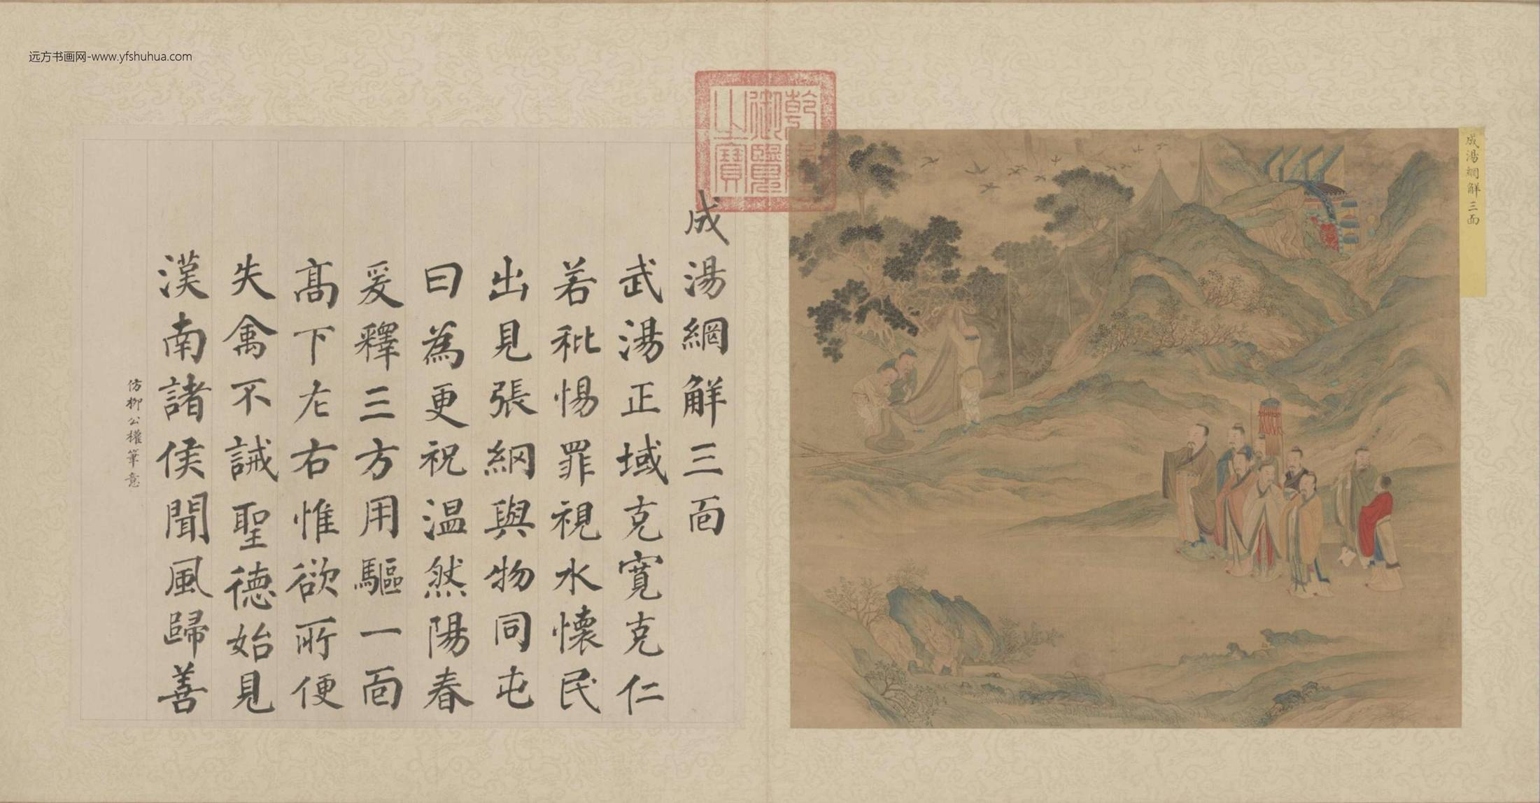 远方书画网-www.yfshuhua.com
成湯網解三面
乾隆御覽之寶
成湯網解三面
武湯正域克寬克仁
若秕惕罪視水懷民
出見張網與物同屯
曰為更祝温然陽春
爰釋三方用驅一面
高下左右惟欲所便
失禽不誡聖德始見
漢南諸侯聞風歸善
仿柳公權筆意